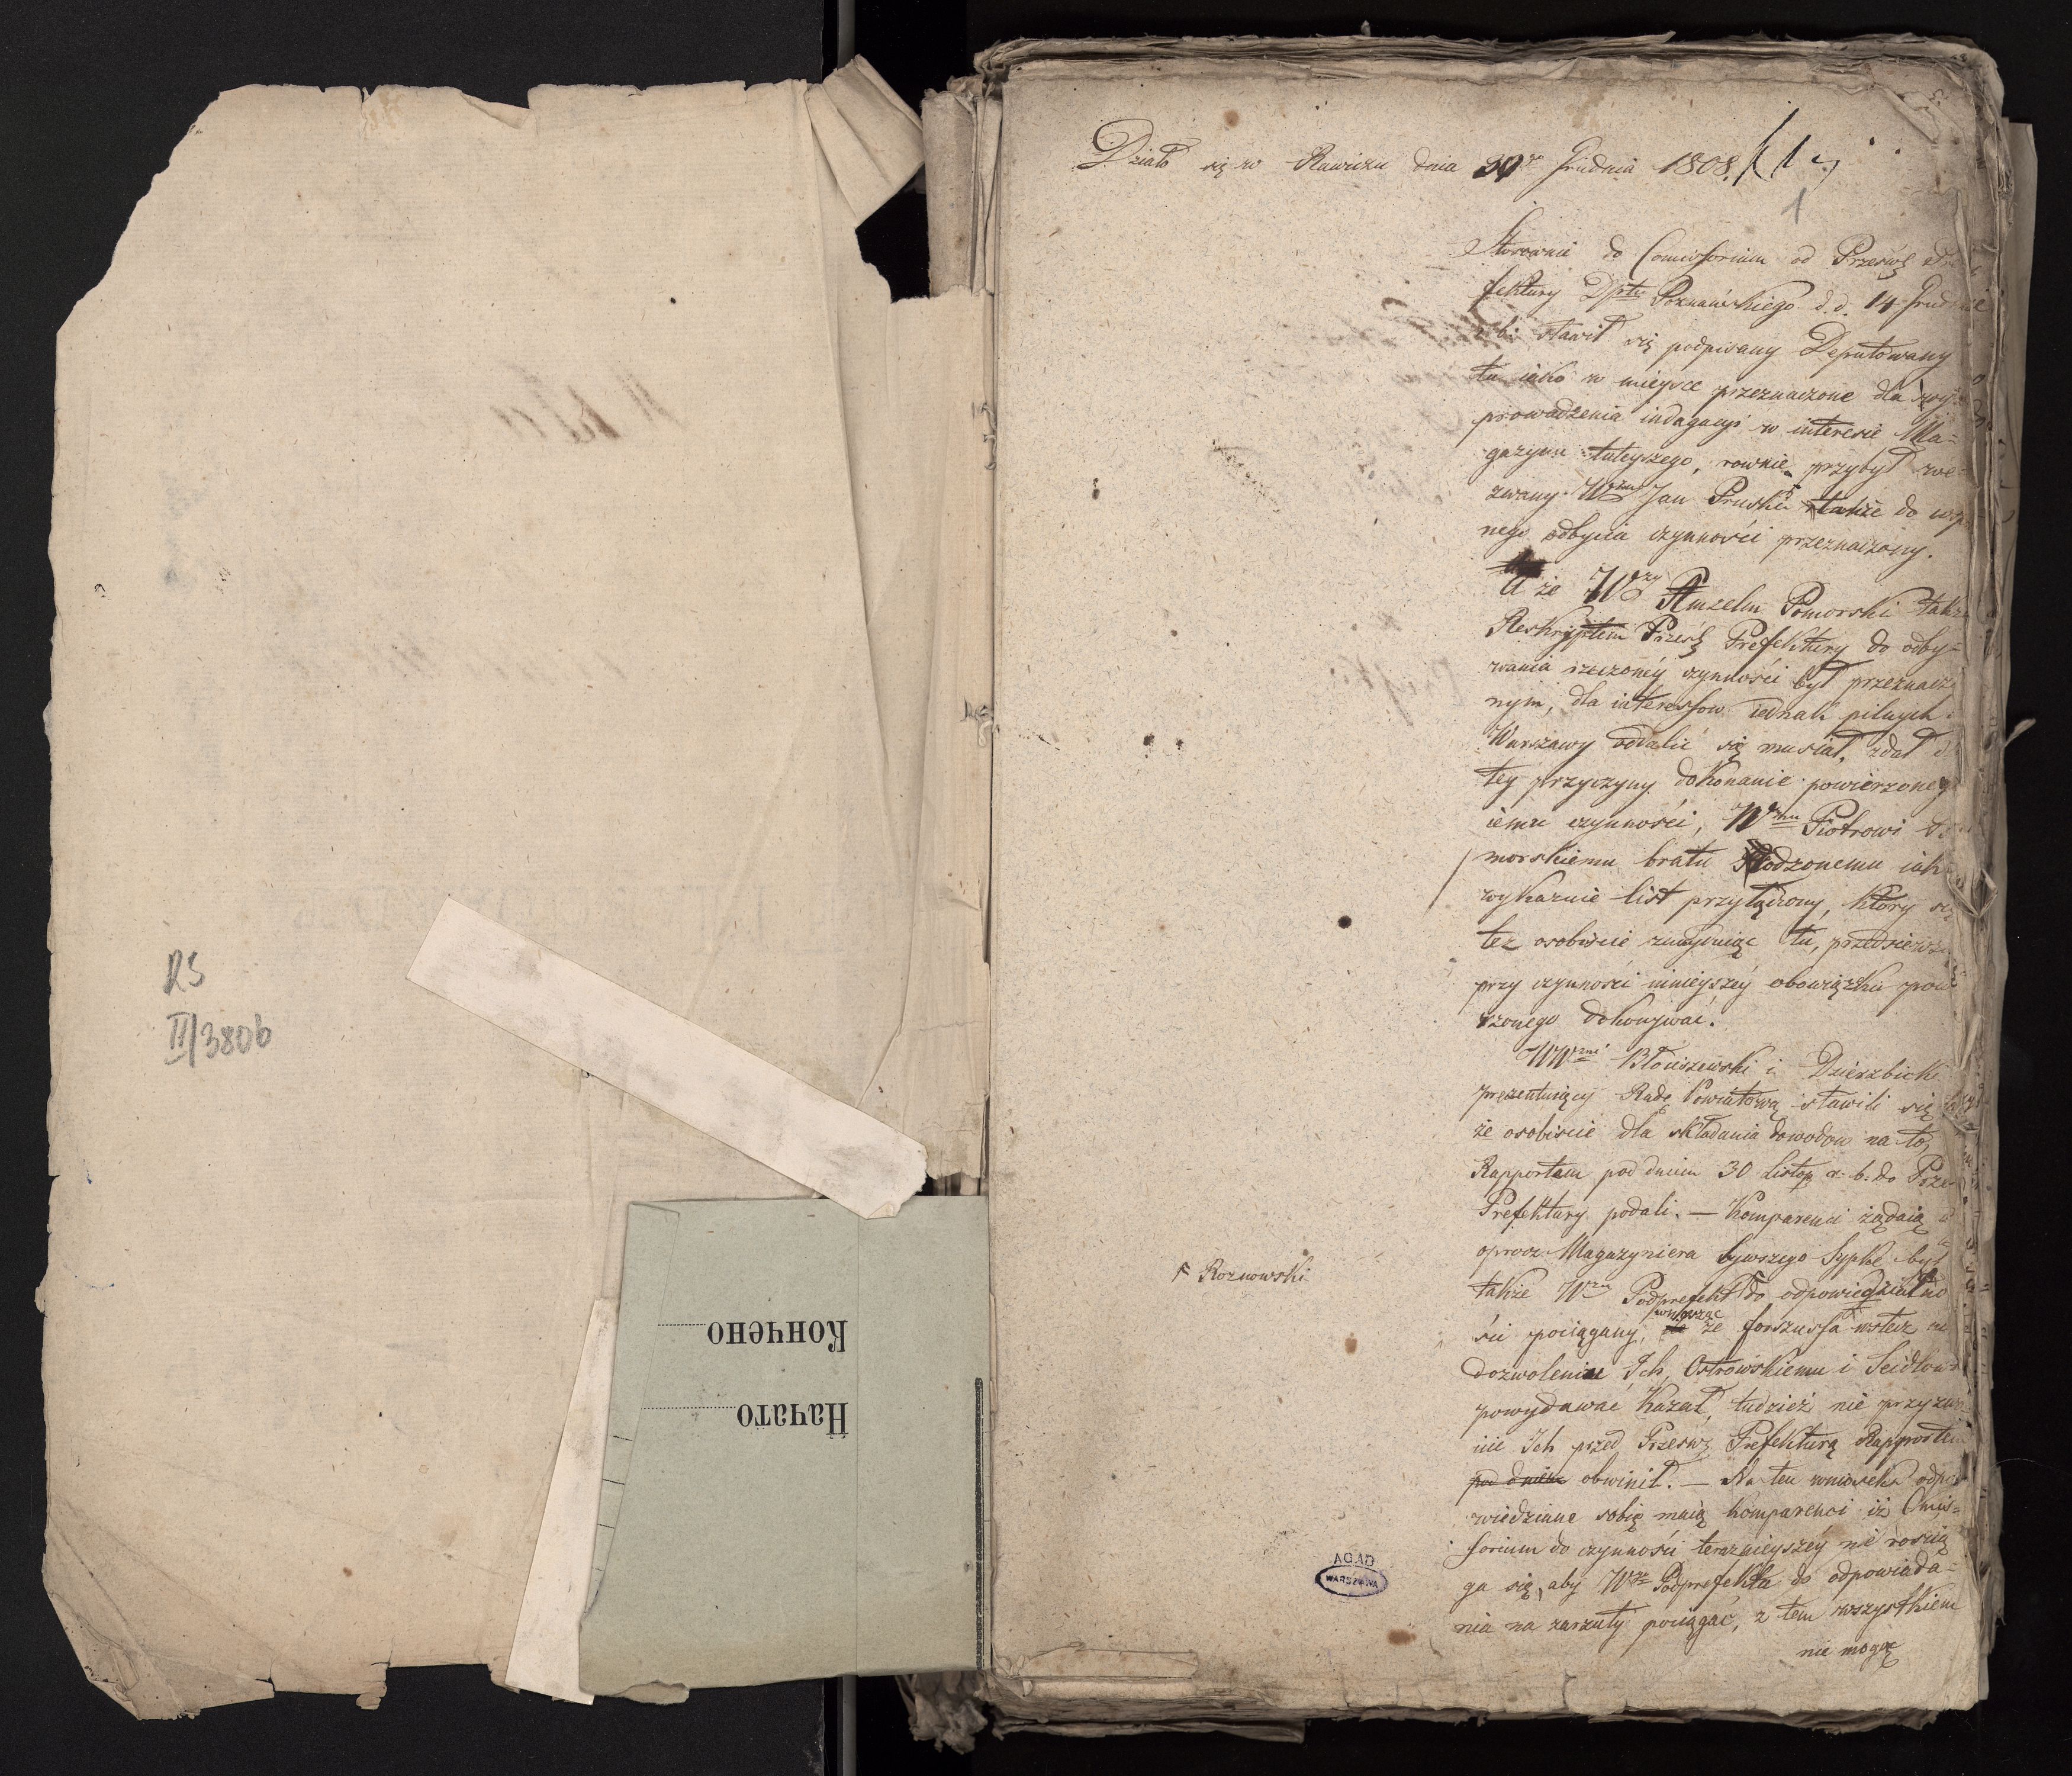 RS
II/3806
Кончено
Начато
Działo się w Rawiczu dnia Grudnia 1808.
1
Stosownie do Comissorium od Prześwę Pre
fektury Dptu Poznańskiego d. d. 14 Grudnia
stawił się podpisany Deputowany
tu iako w mieysce przeznaczone dla
prowadzenia indagacyi w interesie Ma=
gazynu tuteyszego, rownie przybył we=
zwany Jan Pruski także do
nego odbycia czynności przeznaczony.
A że Wzy Anzelm Pomorski także
Reskryptem Prześ Prefektury do odby=
wania rzeczonéy czynności był przeznaczo
nym, dla interessow iednak pilnych
Warszawy oddalić się musiał, zdał
tey przyczyny dokonanie powierzonego
iemu czynności, Piotrowi
morskiemu bratu Rodzonemu iak
wykazuie list przyłączony, który się
też osobiście znayduiąc tu, przedsiewzi
przy czynności ninieyszéy obowiązku
rzonego dokonywać.
WWni Błociszewski i Dzierzbicki
prezentuiący Radę Powiatową stawili się
że osobiście dla składania dowodow na to,
Rapportem pod dniem 30 Listop a. b. do Prze
Prefektury podali. — Komparenci żądaią
oprocz Magazyniera bywszego Sypke był
Roznowski
także Wny Podprefekt do odpowiedzialno
ści pociągany, wnosząc że forszussa wstecz
dozwolenia Ich, Ostrowskiemu i Seidlow
powydawać kazał, tudzież nie przyzwo
icie Ich przed Prześwę Prefekturą Rapportem
pod dniem obwinił. — Na ten wniosek odpo
wiedziane sobie maią komparenci iż Comis=
sorium do czynności teraznieyszéy nie rosią
ga się, aby Podprefekta do odpowiada=
nia na zarzuty pociągać, z tem wszystkiem
nie mogąc
AGAD
WARSZAWA